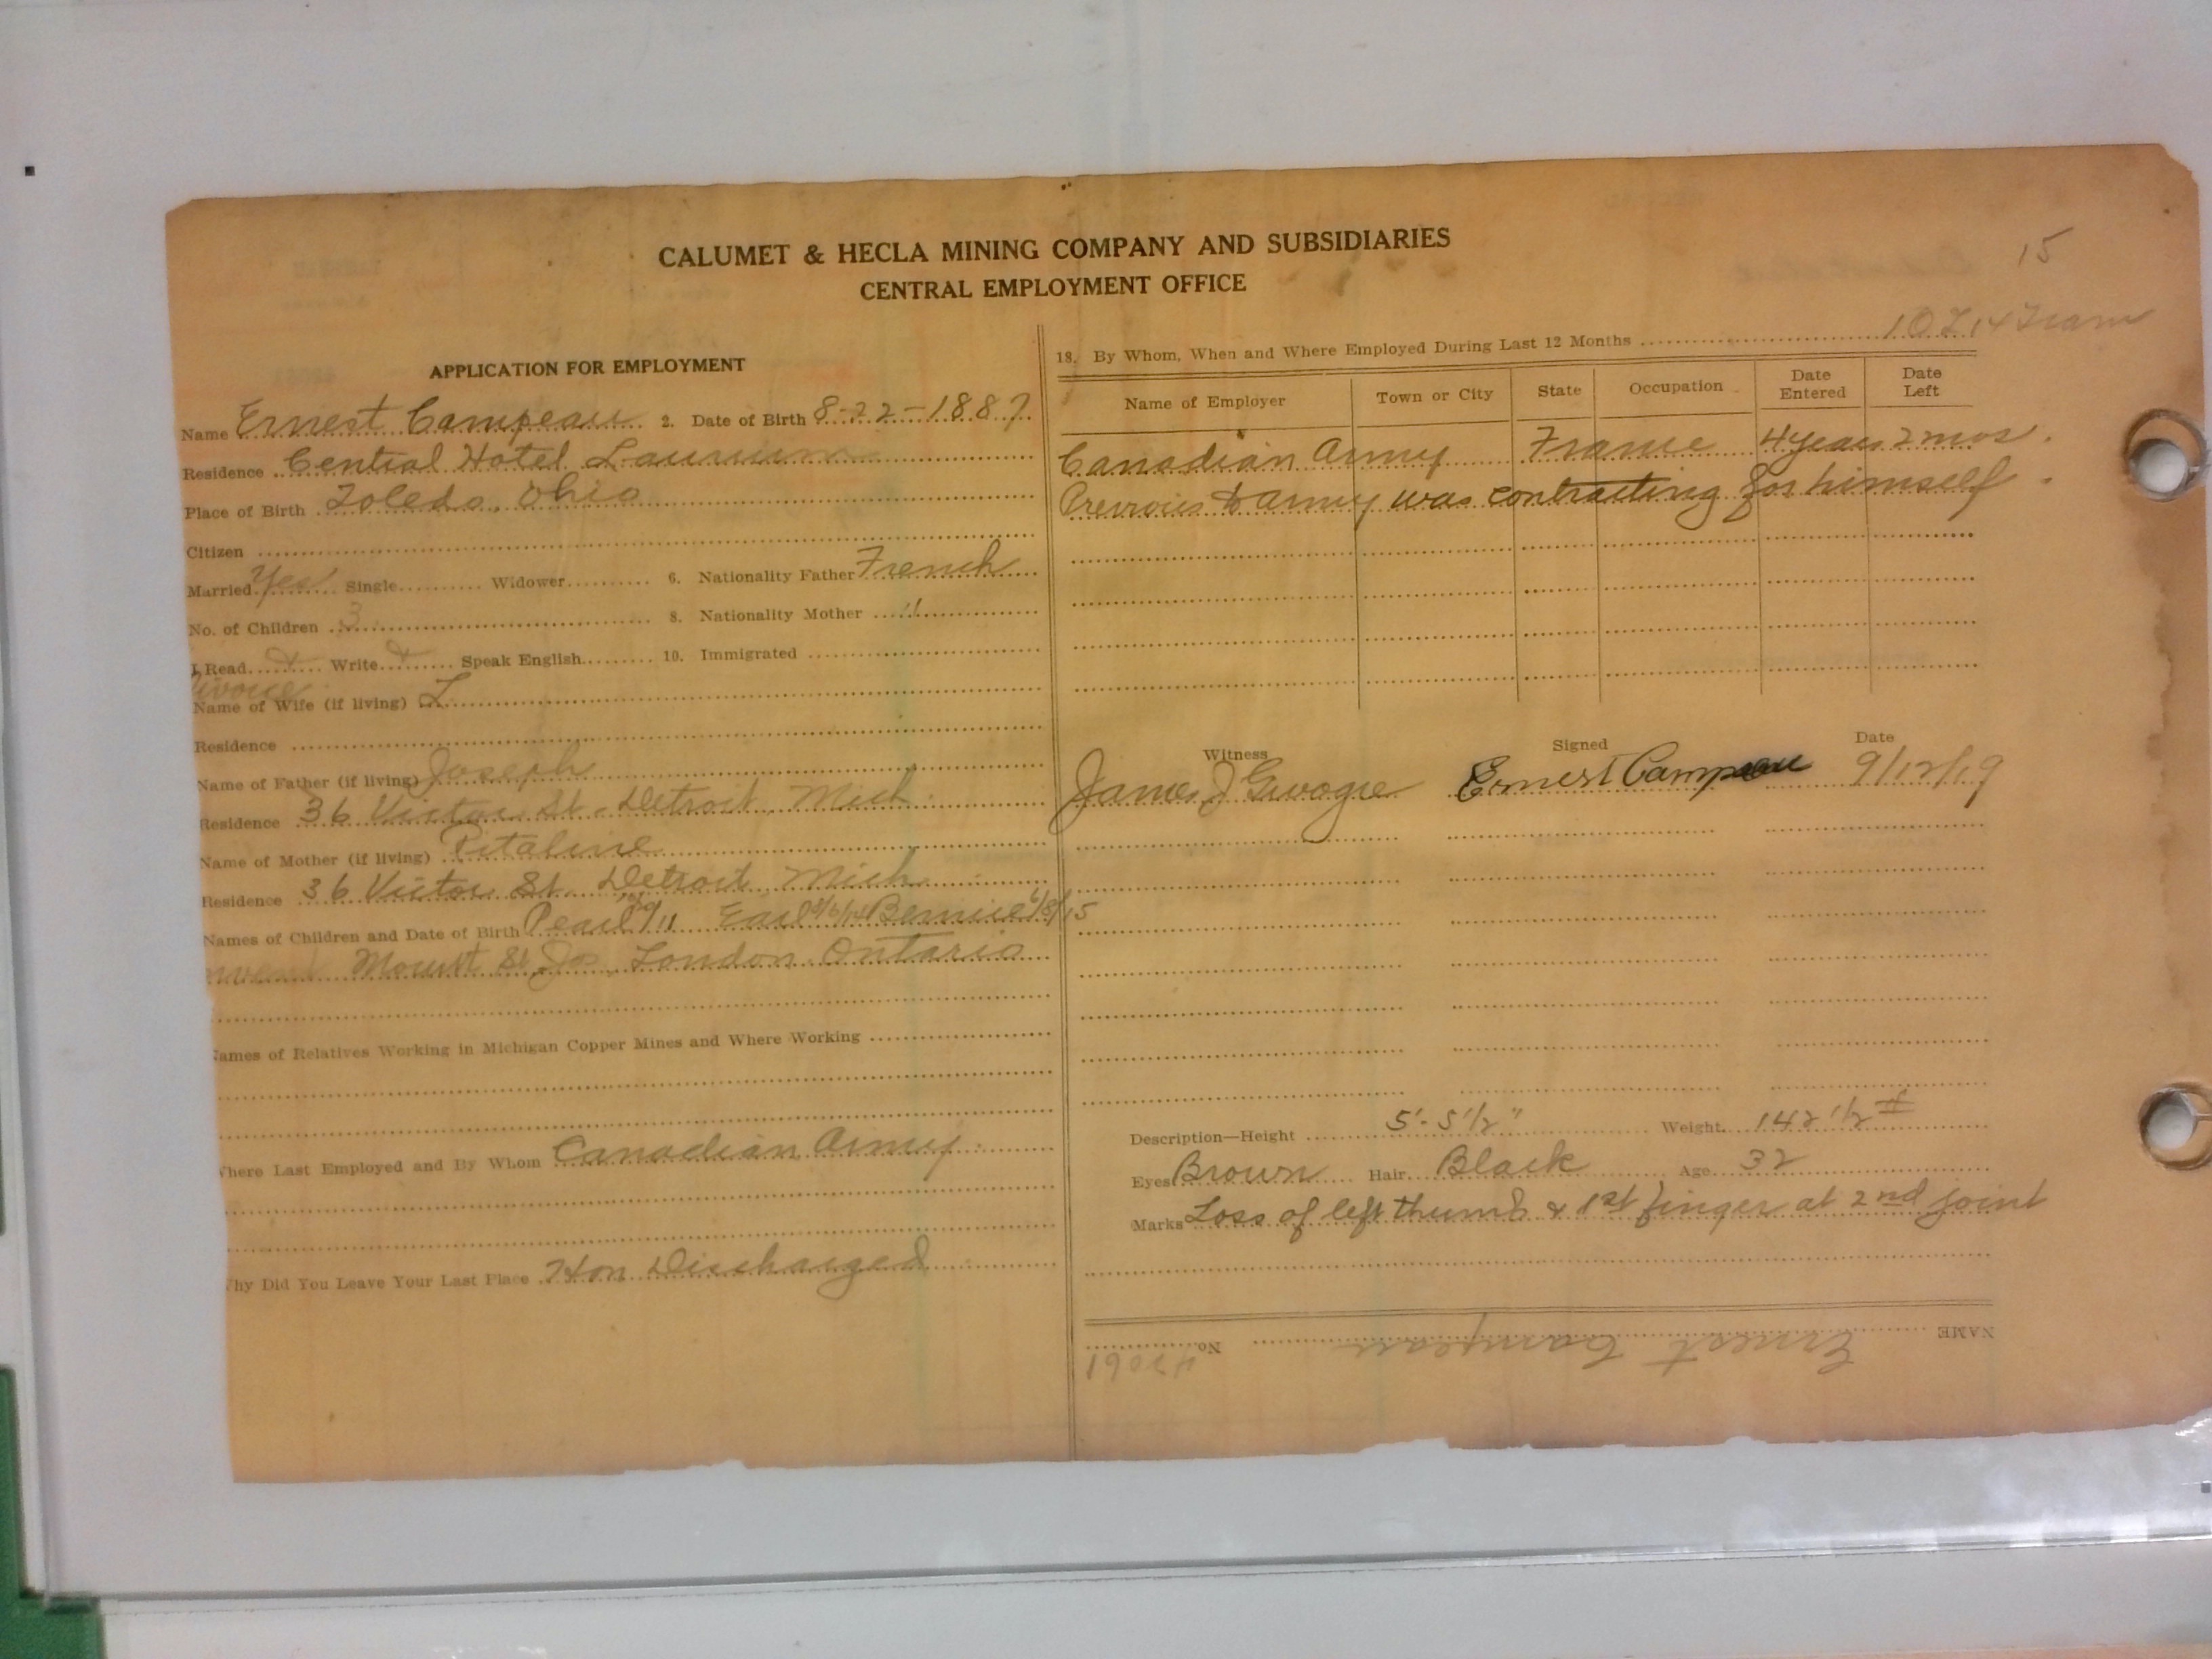 15
CALUMET & HECLA MINING COMPANY AND SUBSIDIARIES
CENTRAL EMPLOYMENT OFFICE
APPLICATION FOR EMPLOYMENT
Name Ernest Campeau 2. Date of Birth 8-22-1887
Residence Central Hotel Laurium
Place of Birth Toledo, Ohio
Citizen
Married Yes Single Widower 6. Nationality Father French
No. of Children 3 8. Nationality Mother "
Read Write Speak English 10. Immigrated
Name of Wife (if living) L
Residence
Name of Father (if living) Joseph
Residence 36 Victor St. Detroit, Mich.
Name of Mother (if living) Pitaline
Residence 36 Victor St. Detroit, Mich
Names of Children and Date of Birth Pearl Earl Bernice 6/8/15
Mount St. Jos. London Ontario
ames of Relatives Working in Michigan Copper Mines and Where Working
here Last Employed and By Whom Canadian Army.
hy Did You Leave Your Last Place Hon Discharged
18. By Whom, When and Where Employed During Last 12 Months
Name of Employer Town or City State Occupation Date Entered Date Left
Canadian Army France 4 years 2 mos.
Previous to army was contracting for himself.
Witness Signed Date
James J Ernest Campeau 9/12/19
Description—Height 5'-5 1/2" Weight 142 1/2 #
Eyes Brown Hair Black Age 32
Marks Loss of left thumb & 1st finger at 2nd joint
NAME Ernest Campeau No.